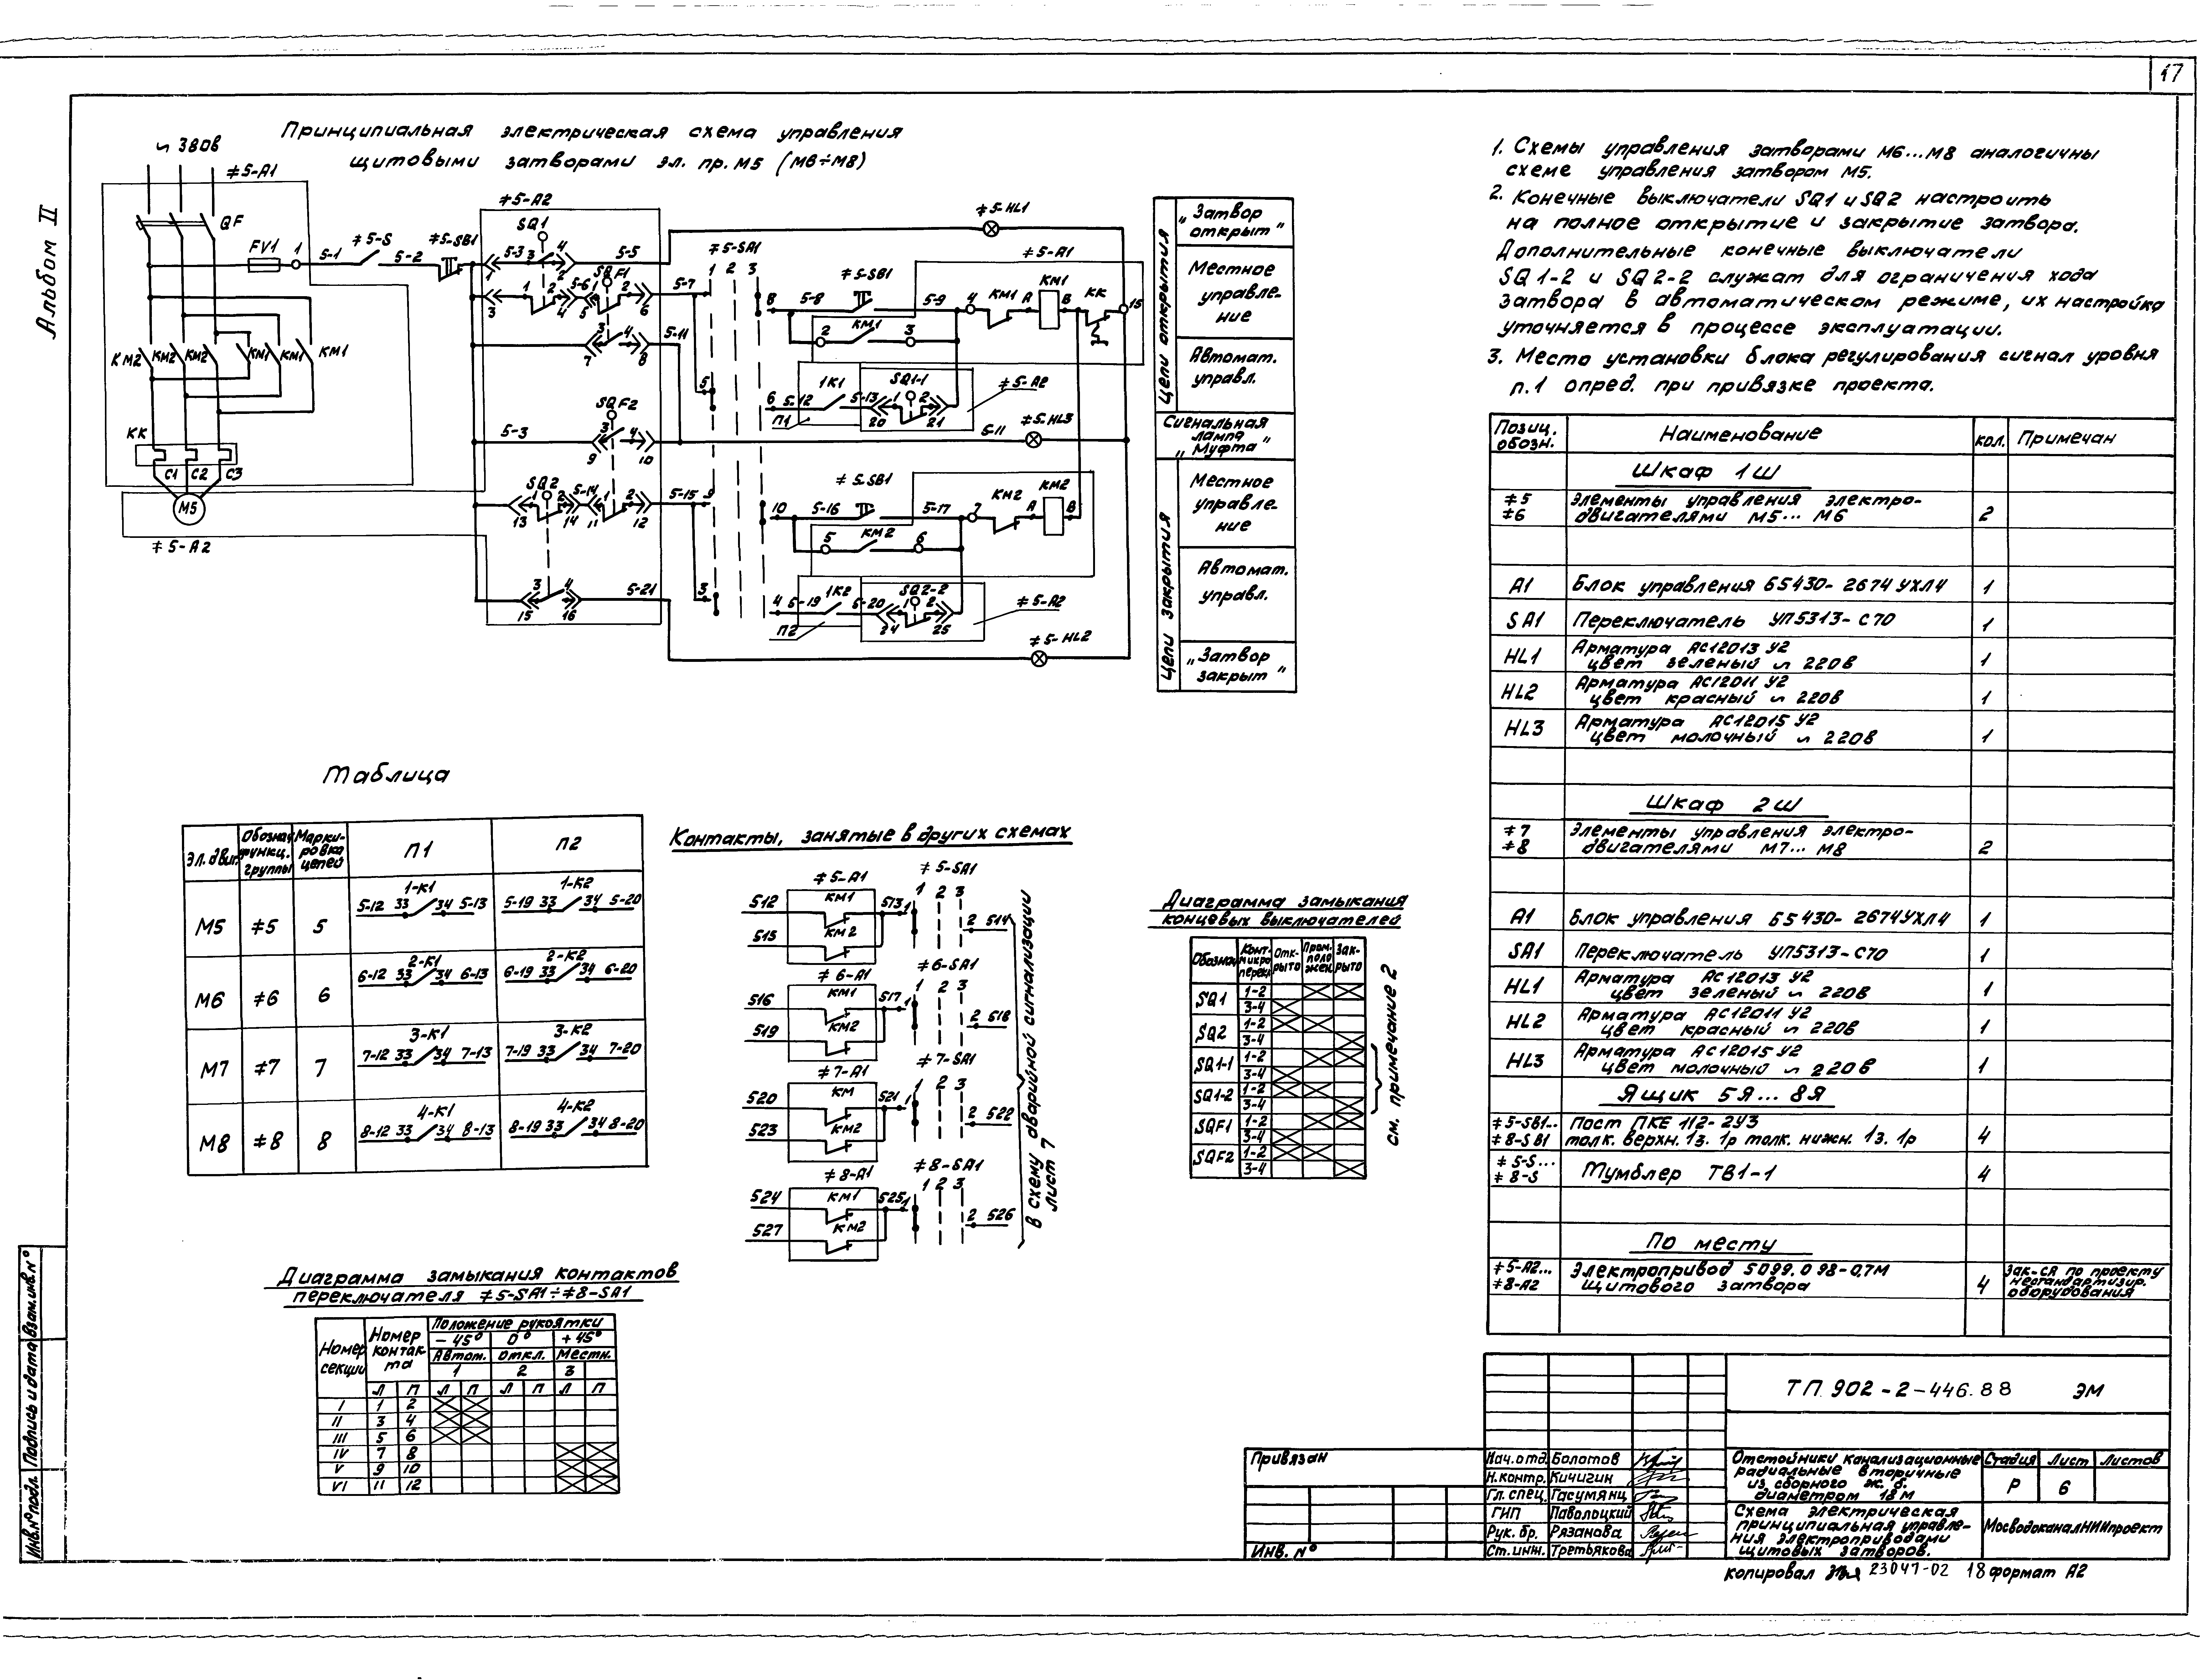 17
Альбом II
Принципиальная электрическая схема управления
щитовыми затворами эл. пр. М5 (М6÷М8)
∽ 380в
≠5-А1
QF
FV1 1 5-1 ≠5-S 5-2 ≠5-SB1
КМ2 КМ2 КМ2 КМ1 КМ1 КМ1
КК
С1 С2 С3
М5
≠5-А2
≠5-А2
SQ1
1 5-3 3 4 2 5-5
SQF1
3 1 2 4 5-6 5 1 2 6 5-7
3 4 5-11
7 8
SQF2
5-3 3 4
9 10
SQ2
1 2 5-14 1 2 5-15 9
13 14 11 12
3 4 5-21
15 16
≠5-SA1
1 2 3
≠5-HL1
≠5-А1
≠5-SB1
8 5-8 5-9 4 КМ1 А КМ1 В КК 15
КМ1
2 3
5
1К1 SQ1-1 ≠5-А2
6 5-12 5-13 1 2
П1 20 21
≠5-HL3
5-11
≠5-SB1 КМ2
10 5-16 5-17 7 КМ2 А В
КМ2
5 6
3
1К2 SQ2-2 ≠5-А2
4 5-19 5-20 1 2
П2 24 25
≠5-HL2
Цепи открытия
„Затвор
открыт“
Местное
управле-
ние
Автомат.
управл.
Сигнальная
лампа
„Муфта“
Цепи закрытия
Местное
управле-
ние
Автомат.
управл.
„Затвор
закрыт“
1. Схемы управления затворами М6...М8 аналогичны
схеме управления затвором М5.
2. Конечные выключатели SQ1 и SQ2 настроить
на полное открытие и закрытие затвора.
Дополнительные конечные выключатели
SQ1-2 и SQ2-2 служат для ограничения хода
затвора в автоматическом режиме, их настройка
уточняется в процессе эксплуатации.
3. Место установки блока регулирования сигнал уровня
п.1 опред. при привязке проекта.
Позиц. обозн. Наименование кол. Примечан
Шкаф 1Ш
≠5 Элементы управления электро-
≠6 двигателями М5... М6 2
А1 Блок управления Б5430-2674УХЛ4 1
SA1 Переключатель УП5313-С70 1
HL1 Арматура АС12013 У2
цвет зеленый ∽ 220в 1
HL2 Арматура АС12011 У2
цвет красный ∽ 220в 1
HL3 Арматура АС12015 У2
цвет молочный ∽ 220в 1
Шкаф 2Ш
≠7 Элементы управления электро-
≠8 двигателями М7... М8 2
А1 Блок управления Б5430-2674УХЛ4 1
SA1 Переключатель УП5313-С70 1
HL1 Арматура АС12013 У2
цвет зеленый ∽ 220в 1
HL2 Арматура АС12011 У2
цвет красный ∽ 220в 1
HL3 Арматура АС12015 У2
цвет молочный ∽ 220в 1
Ящик 5Я... 8Я
≠5-SB1.. Пост ПКЕ 112-2У3
≠8-SB1 толк. верхн. 1з. 1р толк. нижн. 1з. 1р 4
≠5-S...
≠8-S Тумблер ТВ1-1 4
По месту
≠5-А2... Электропривод 5099.098-0,7М Зак-ся по проекту
≠8-А2 щитового затвора 4 нестандартизир.
оборудования
Таблица
Эл. двиг. Обознач. функц. группы Марки-ровка цепей П1 П2
М5 ≠5 5 1-К1 5-12 33 34 5-13 1-К2 5-19 33 34 5-20
М6 ≠6 6 2-К1 6-12 33 34 6-13 2-К2 6-19 33 34 6-20
М7 ≠7 7 3-К1 7-12 33 34 7-13 3-К2 7-19 33 34 7-20
М8 ≠8 8 4-К1 8-12 33 34 8-13 4-К2 8-19 33 34 8-20
Контакты, занятые в других схемах
≠5-А1 ≠5-SA1
512 КМ1 513 1 1 2 3 2 514
515 КМ2
≠6-А1 ≠6-SA1
516 КМ1 517 1 1 2 3 2 518
519 КМ2
≠7-А1 ≠7-SA1
520 КМ 521 1 1 2 3 2 522
523 КМ2
≠8-А1 ≠8-SA1
524 КМ1 525 1 1 2 3 2 526
527 КМ2
В схему аварийной сигнализации
лист 7
Диаграмма замыкания
концевых выключателей
Обознач. Конт. микро перек. Отк-рыто Пром. поло жен. Зак-рыто
SQ1 1-2
3-4
SQ2 1-2
3-4
SQ1-1 1-2
3-4
SQ1-2 1-2
3-4
SQF1 1-2
3-4
SQF2 1-2
3-4
см. примечание 2
Диаграмма замыкания контактов
переключателя ≠5-SA1÷≠8-SA1
Номер секции Номер контак та Положение рукоятки
-45° 0° +45°
Автом. Откл. Местн.
1 2 3
Л П Л П Л П Л П
I 1 2
II 3 4
III 5 6
IV 7 8
V 9 10
VI 11 12
Инв.№подл. Подпись и дата Взам.инв.№
Привязан
Инв. №
Нач.отд. Болотов
Н.контр. Кичигин
Гл. спец. Гасумянц
ГИП Паволоцкий
Рук. бр. Рязанова
Ст. инж. Третьякова
ТП 902-2-446.88 ЭМ
Отстойники канализационные
радиальные вторичные
из сборного ж. б.
диаметром 18м
Стадия Лист Листов
Р 6
Схема электрическая
принципиальная управле-
ния электроприводами
щитовых затворов.
МосводоканалНИИпроект
копировал 23047-02 18 формат А2